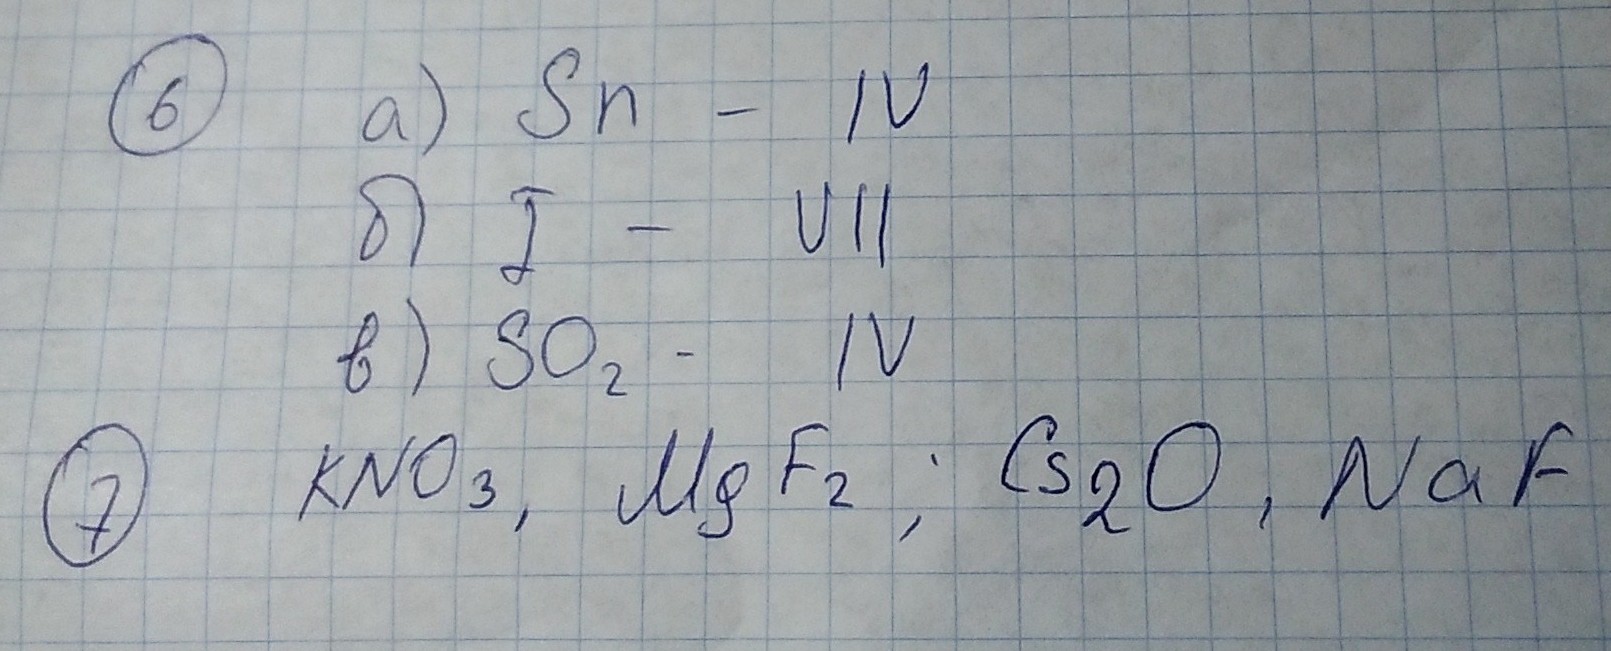 6 а) Sn - IV
б) I - VII
в) SO₂ - IV
7 KNO₃, MgF₂; Cs₂O, NaF